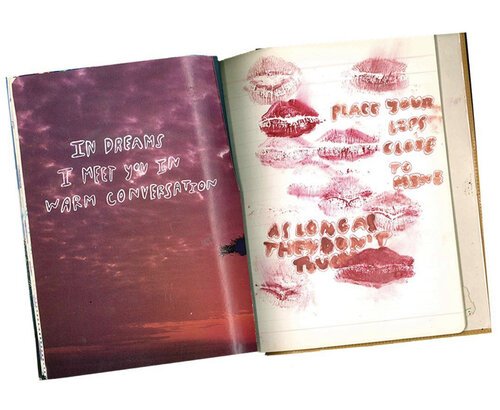 IN DREAMS
I MEET YOU IN
WARM CONVERSATION
PLACE YOUR
LIPS
CLOSE
TO
MINE
AS LONG AS
THEY DON'T
TOUCH